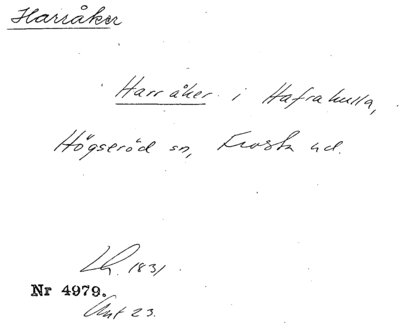 Harråker
Harråker i Hafrahulla,
Högseröd sn, Frosta hd.
Lh. 1831
Nr 4979.
Ant 23.